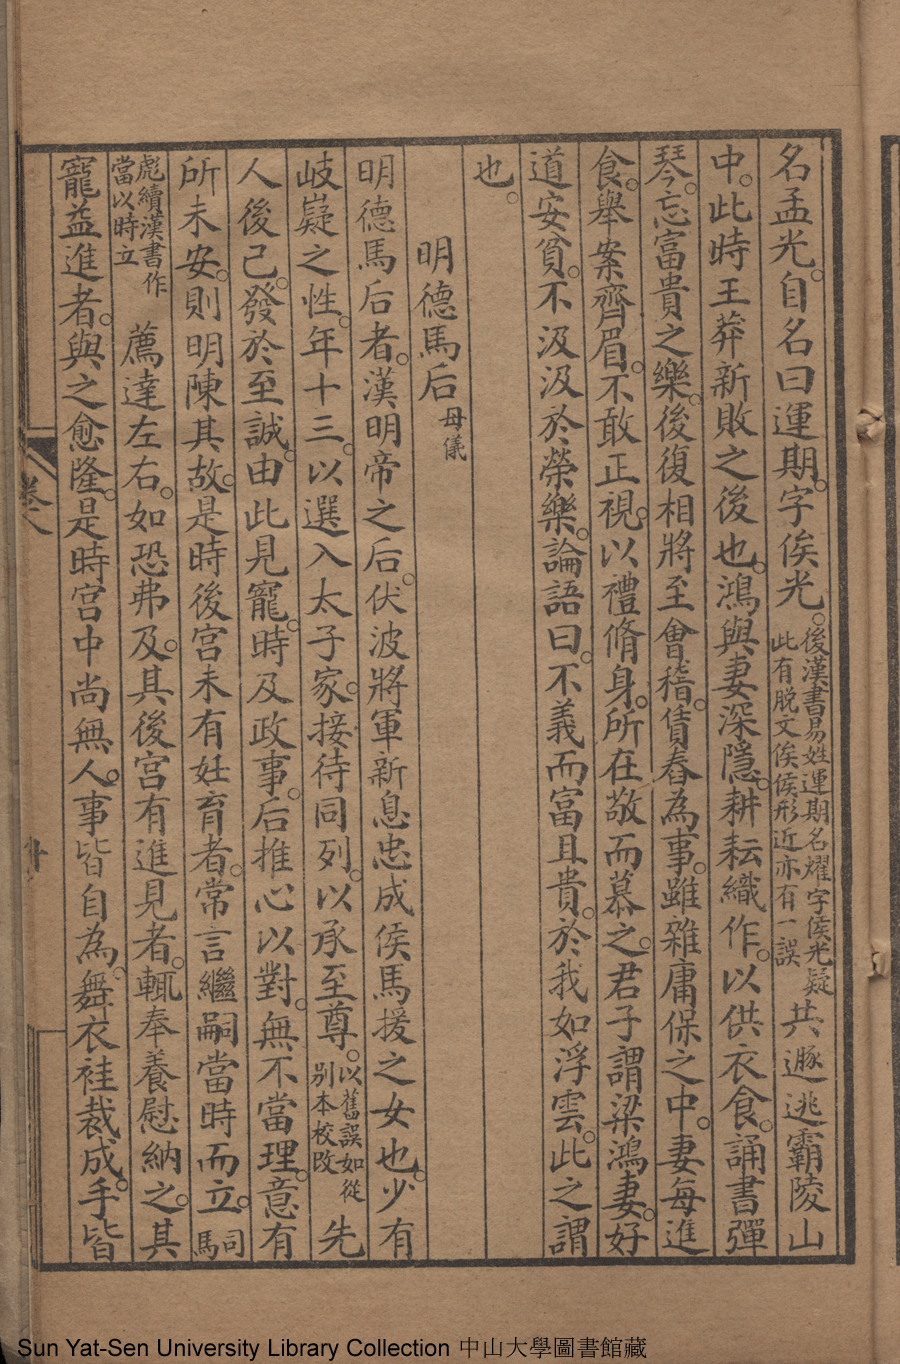 名孟光。自名曰運期。字俟光。後漢書易姓運期名燿字侯光疑此有脱文俟侯形近亦有一誤共遯逃霸陵山
中。此時王莽新敗之後也。鴻與妻深隱。耕耘織作。以供衣食。誦書彈
琴。忘富貴之樂。後復相將至會稽。賃舂為事。雖雜庸保之中。妻每進
食。舉案齊眉。不敢正視。以禮脩身。所在敬而慕之。君子謂梁鴻妻。好
道安貧。不汲汲於榮樂。論語曰。不義而富且貴。於我如浮雲。此之謂
也。
明德馬后母儀
明德馬后者。漢明帝之后。伏波將軍新息忠成侯馬援之女也。少有
岐嶷之性。年十三。以選入太子家。接待同列。以承至尊。以舊誤如從别本校改先
人後己。發於至誠。由此見寵。時及政事。后推心以對。無不當理。意有
所未安。則明陳其故。是時後宮未有妊育者。常言繼嗣當時而立。司馬
彪續漢書作當以時立薦達左右。如恐弗及。其後宮有進見者。輒奉養慰納之。其
寵益進者。與之愈隆。是時宮中尚無人。事皆自為。舞衣袿裁成。手皆
卷八
Sun Yat-Sen University Library Collection 中山大學圖書館藏